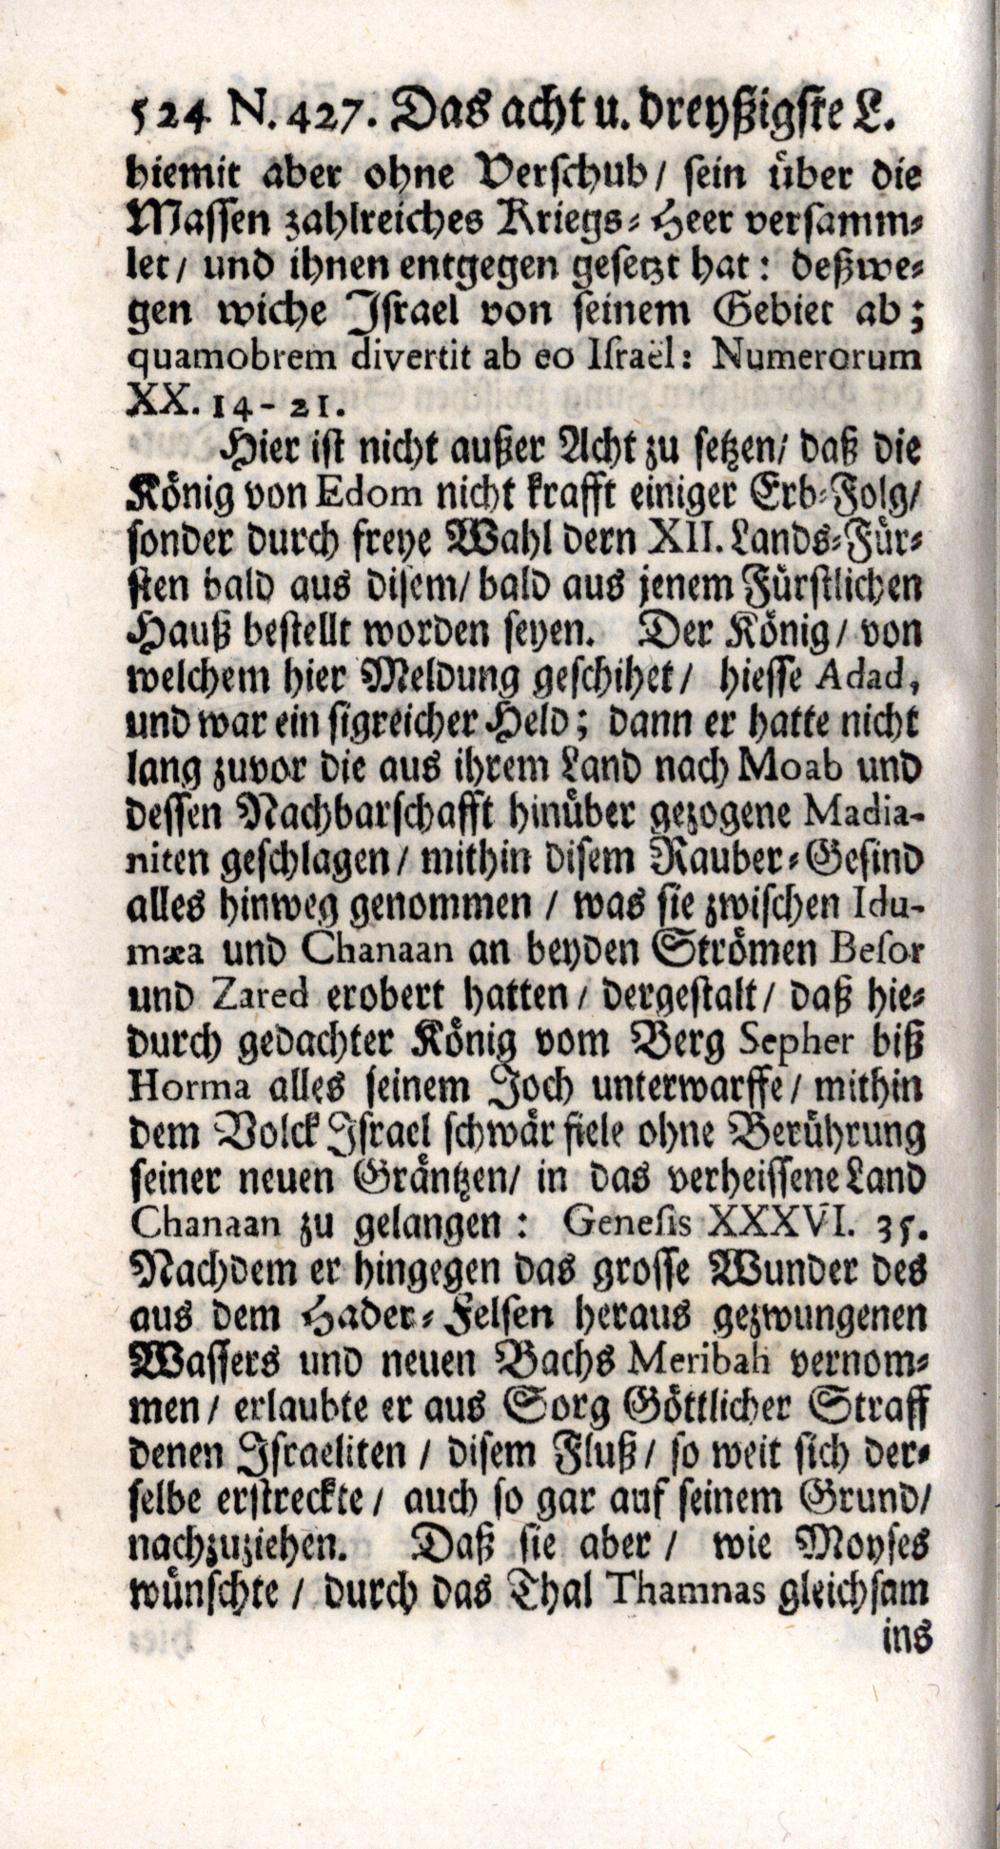 524 N. 427. Das acht u. dreyßigste L.
hiemit aber ohne Verschub / sein über die
Massen zahlreiches Kriegs-Heer versamm-
let / und ihnen entgegen gesetzt hat: deßwe-
gen wiche Israel von seinem Gebiet ab;
quamobrem divertit ab eo Israël: Numerorum
XX. 14-21.
Hier ist nicht außer Acht zu setzen / daß die
König von Edom nicht krafft einiger Erb-Folg /
sonder durch freye Wahl dern XII. Lands-Für-
sten bald aus disem / bald aus jenem Fürstlichen
Hauß bestellt worden seyen. Der König / von
welchem hier Meldung geschihet / hiesse Adad,
und war ein sigreicher Held; dann er hatte nicht
lang zuvor die aus ihrem Land nach Moab und
dessen Nachbarschafft hinüber gezogene Madia-
niten geschlagen / mithin disem Rauber-Gesind
alles hinweg genommen / was sie zwischen Idu-
mæa und Chanaan an beyden Strömen Besor
und Zared erobert hatten / dergestalt / daß hie-
durch gedachter König vom Berg Sepher biß
Horma alles seinem Joch unterwarffe / mithin
dem Volck Israel schwär fiele ohne Berührung
seiner neuen Gräntzen / in das verheissene Land
Chanaan zu gelangen: Genesis XXXVI. 35.
Nachdem er hingegen das grosse Wunder des
aus dem Hader-Felsen heraus gezwungenen
Wassers und neuen Bachs Meribah vernom-
men / erlaubte er aus Sorg Göttlicher Straff
denen Israeliten / disem Fluß / so weit sich der-
selbe erstreckte / auch so gar auf seinem Grund /
nachzuziehen. Daß sie aber / wie Moyses
wünschte / durch das Thal Thamnas gleichsam
ins